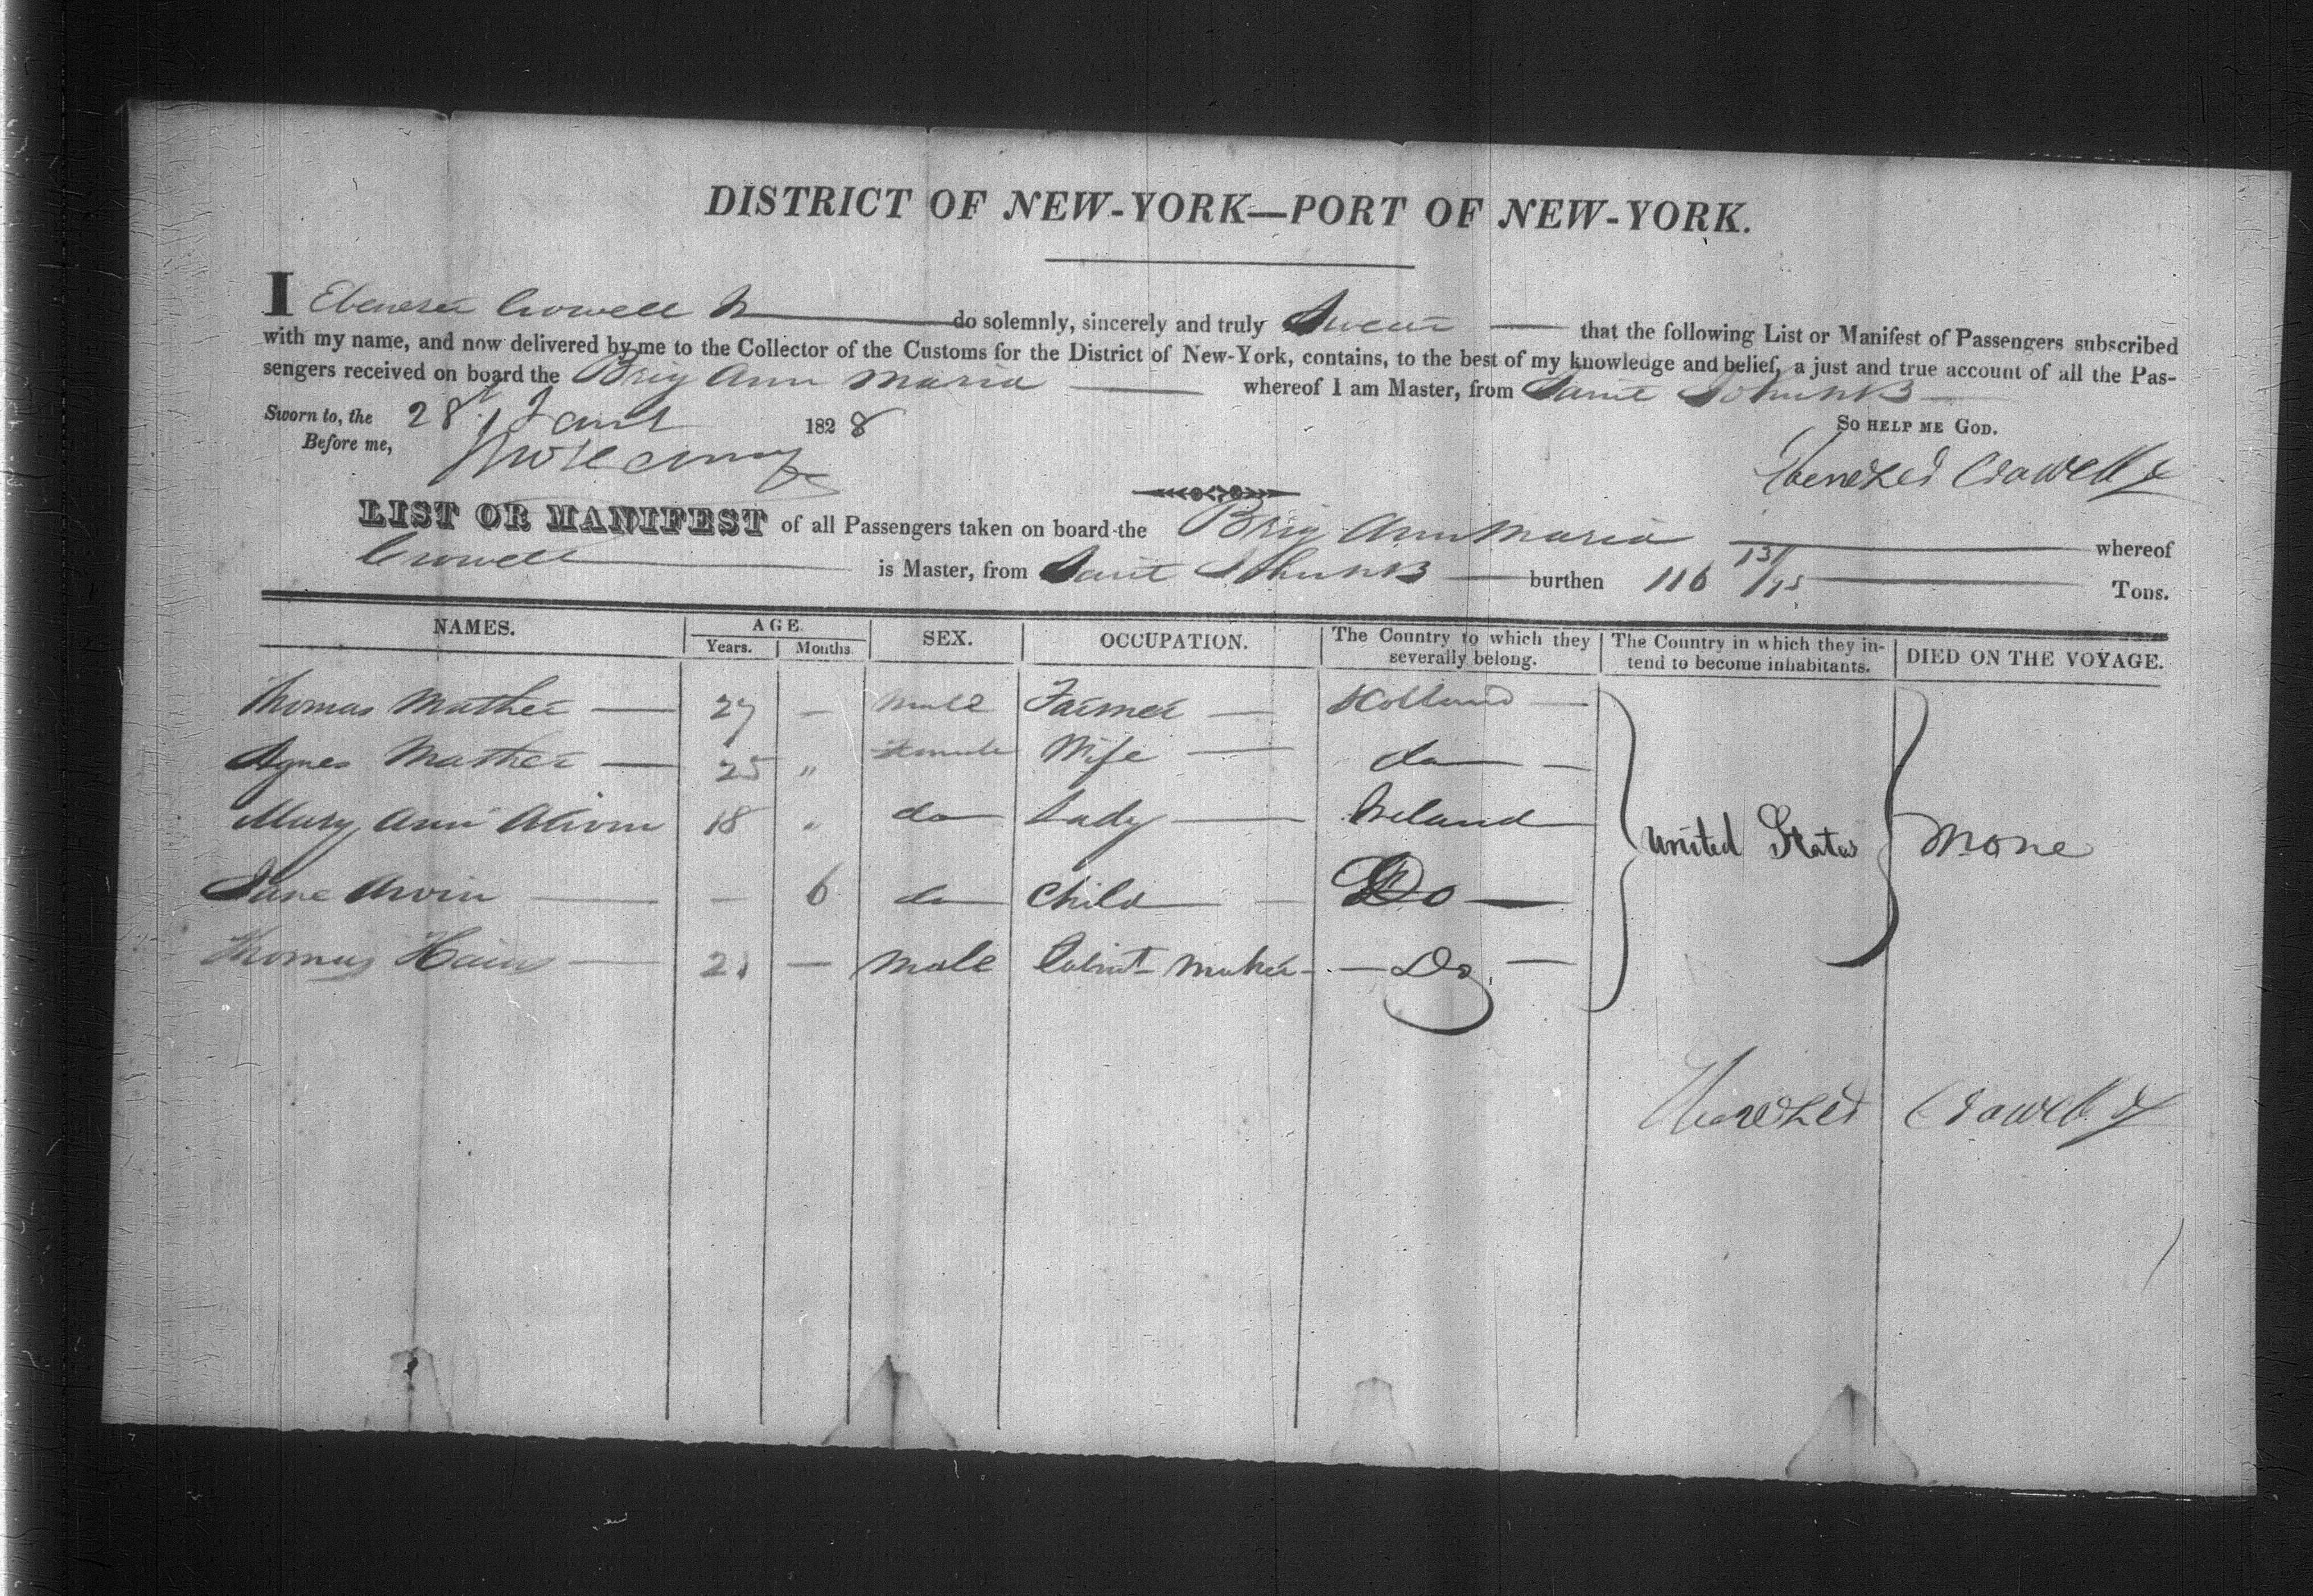 DISTRICT OF NEW-YORK—PORT OF NEW-YORK.
I Ebenezer Crowell Jr do solemnly, sincerely and truly Swear that the following List or Manifest of Passengers subscribed
with my name, and now delivered by me to the Collector of the Customs for the District of New-York, contains, to the best of my knowledge and belief, a just and true account of all the Pas-
sengers received on board the Brig Ann Maria whereof I am Master, from Saint John NB
Sworn to, the 28 1828 SO HELP ME GOD.
Before me,
Ebenezer Crowell Jr
LIST OR MANIFEST of all Passengers taken on board the Brig Ann Maria whereof
Crowell is Master, from Saint John NB burthen 116 Tons.
NAMES. AGE. SEX. OCCUPATION. The Country to which they severally belong. The Country in which they in- DIED ON THE VOYAGE.
Years. Months. tend to become inhabitants.
Thomas Mather — 27 — male Farmer —
Agnes Mather — 25 " Female Wife — do —
Mary Ann 18 " do Lady — Ireland
Jane — — 6 do Child — Do —
Thomas — 21 — male Cabinet Maker — Do —
United States
None
Ebenezer Crowell Jr